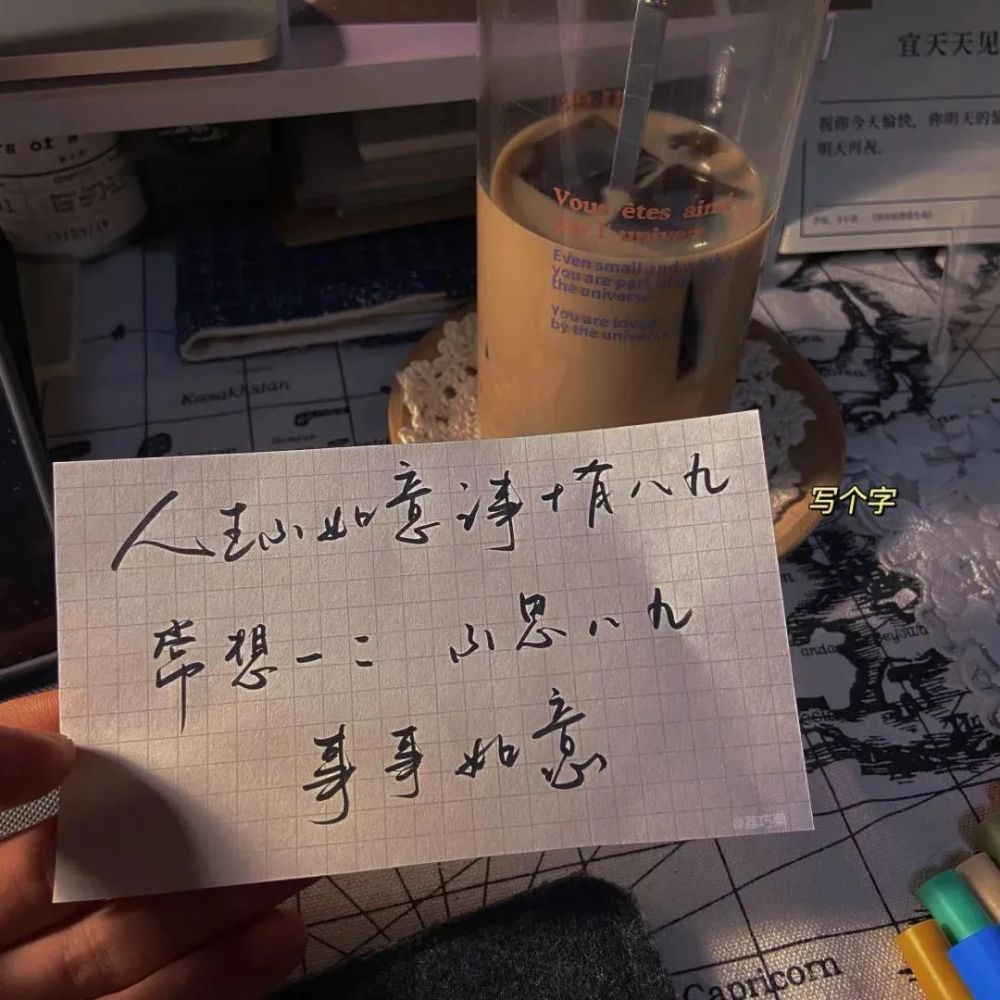 宜天天见
祝你今天愉快，你明天的愉
明天再祝。
rs of a
Vous êtes aimé
par l'univers
Even small and
you are part of
the universe
You are loved
by the universe
Kazakhstan
写个字
人生不如意之事十有八九
常想一二 不思八九
事事如意
@荔巧藕
beyond
Capricorn